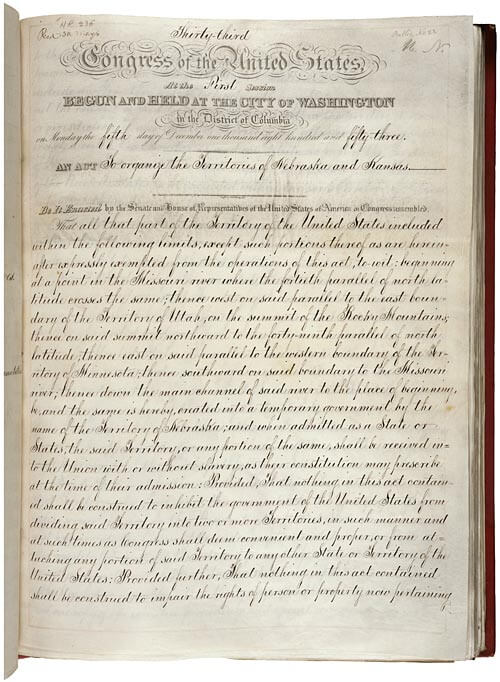 H.R. 236
Thirty-third
Congress of the United States,
At the First Session
BEGUN AND HELD AT THE CITY OF WASHINGTON
in the District of Columbia
on Monday the fifth day of December one thousand eight hundred and fifty-three.
AN ACT To organize the Territories of Nebraska and Kansas.
Be it Enacted by the Senate and House of Representatives of the United States of America in Congress assembled,
That all that part of the Territory of the United States included
within the following limits, except such portions thereof as are herein-
after expressly exempted from the operations of this act, to wit: beginning
at a point in the Missouri river where the fortieth parallel of north la-
titude crosses the same; thence west on said parallel to the east boun-
dary of the Territory of Utah, on the summit of the Rocky Mountains;
thence on said summit northward to the forty-ninth parallel of north
latitude; thence east on said parallel to the western boundary of the Ter-
ritory of Minnesota; thence southward on said boundary to the Missouri
river; thence down the main channel of said river to the place of beginning,
be, and the same is hereby, created into a temporary government by the
name of the Territory of Nebraska; and when admitted as a State or
States, the said Territory, or any portion of the same, shall be received in-
to the Union with or without slavery, as their constitution may prescribe
at the time of their admission: Provided, That nothing in this act contain-
ed shall be construed to inhibit the government of the United States from
dividing said Territory into two or more Territories, in such manner and
at such times as Congress shall deem convenient and proper, or from at-
taching any portion of said Territory to any other State or Territory of the
United States: Provided further, That nothing in this act contained
shall be construed to impair the rights of person or property now pertaining